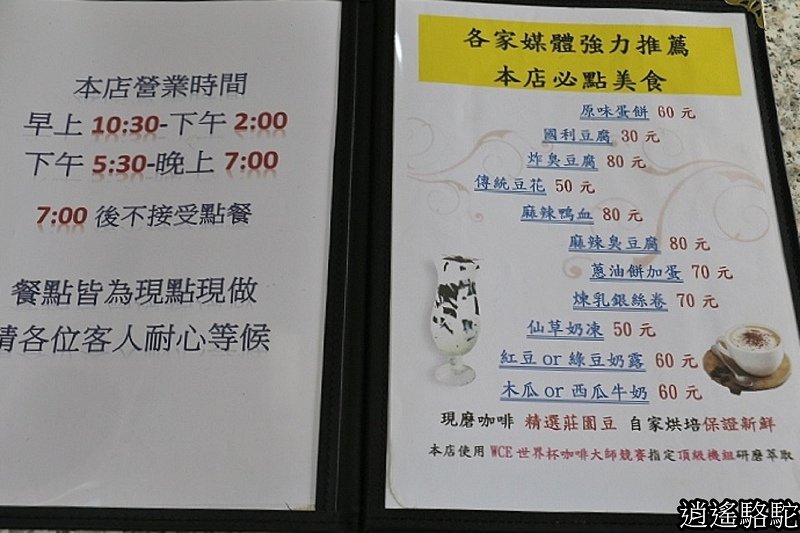 本店營業時間
早上 10:30-下午 2:00
下午 5:30-晚上 7:00
7:00 後不接受點餐
餐點皆為現點現做
請各位客人耐心等候
各家媒體強力推薦
本店必點美食
原味蛋餅 60 元
國利豆腐 30 元
炸臭豆腐 80 元
傳統豆花 50 元
麻辣鴨血 80 元
麻辣臭豆腐 80 元
蔥油餅加蛋 70 元
煉乳銀絲卷 70 元
仙草奶凍 50 元
紅豆 or 綠豆奶露 60 元
木瓜 or 西瓜牛奶 60 元
現磨咖啡 精選莊園豆 自家烘培保證新鮮
本店使用 WCE 世界杯咖啡大師競賽指定頂級機組研磨萃取
逍遙駱駝